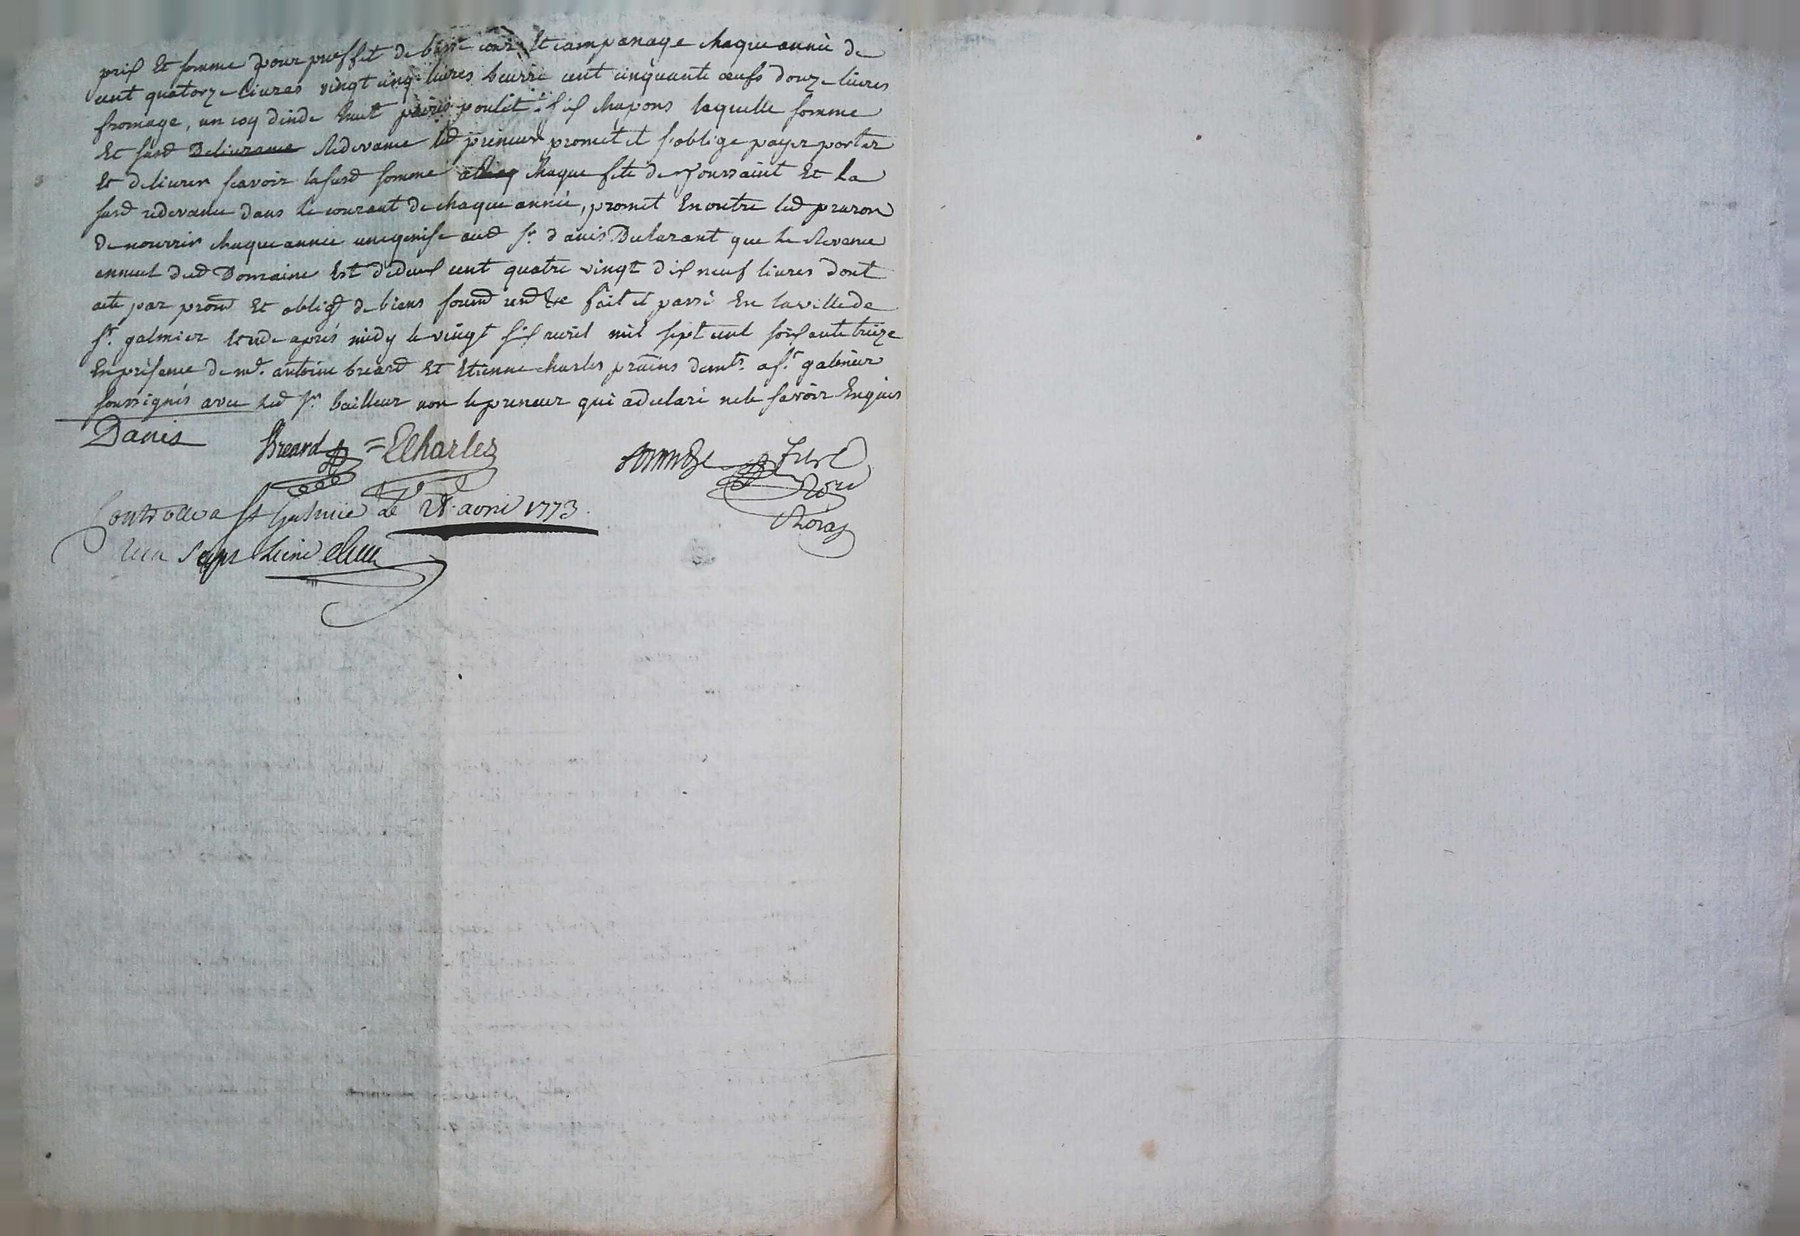 prix et somme pour proffit de basse cour et campanage chaque année de
cent quatorze livres vingt cinq livres beurre cent cinquante œufs douze livres
fromage, un coq dinde huit poulit. six chapons laquelle somme
et susd Delivrance Redevance led preneur promet et s'oblige payer porter
et delivrer scavoir la susd somme chaque fete de Toussaint et la
susd redevance dans le courant de chaque année, promet en outre led praron
de nourrir chaque année une genise aud Sr. danis Declarant que le Revenu
annuel dud Domaine est de deux cent quatre vingt dix neuf livres dont
acte par prom et oblig de biens soumd rend &e fait et passé en la ville de
St. galmier etude aprés midy le vingt six avril mil sept cent soixante treize
en présence de me. antoine breard et Etienne charles pratins demts. a St. galmier
soussignés avec led Sr bailleur non le preneur qui a declaré ne le savoir Enquis
Danis Breard = E Charles
Controllé a St Galmier le 28 avril 1773.
Recu Sept